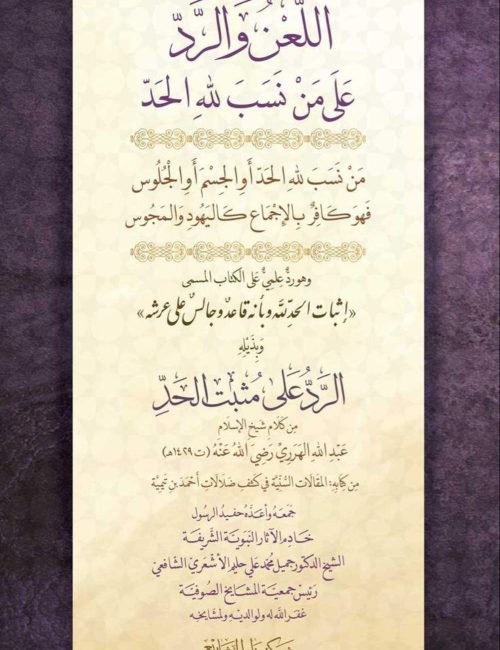 اللَّعْنُ وَالرَّدُّ
عَلَى مَنْ نَسَبَ للهِ الحَدّ
مَنْ نَسَبَ للهِ الحَدّ أَوِ الجِسْمَ أَوِ الجُلُوس
فَهُوَ كَافِرٌ بِالإِجْمَاعِ كَاليَهُودِ وَالمَجُوس
وهو ردٌّ علميٌّ على الكتاب المسمى
«إثبات الحدّ لله وبأنه قاعدٌ وجالسٌ على عرشه»
وَبِذَيْلِهِ
الرَّدُّ عَلَى مُثْبِتِ الحَدِّ
مِن كَلَامِ شَيخِ الإسلام
عَبْدِ اللهِ الهَرَرِيِّ رَضِيَ اللهُ عَنْهُ (ت ١٤٢٩هـ)
مِن كِتَابِهِ: المَقَالَات السُّنِّيَّة فِي كَشْفِ ضَلَالَاتِ أَحْمَدَ بنِ تَيْمِيَّة
جَمَعَهُ وَأَعَدَّهُ حَفِيدُ الرسول
خَادِمُ الآثَارِ النَّبَوِيَّةِ الشَّرِيفَةِ
الشيخ الدكتور جميل محمد علي حليم الأشعريّ الشافعيّ
رَئِيسُ جَمعِيَّةِ المَشَايِخِ الصُّوفِيَّةِ
غفر الله له ولوالديه ولمشايخه